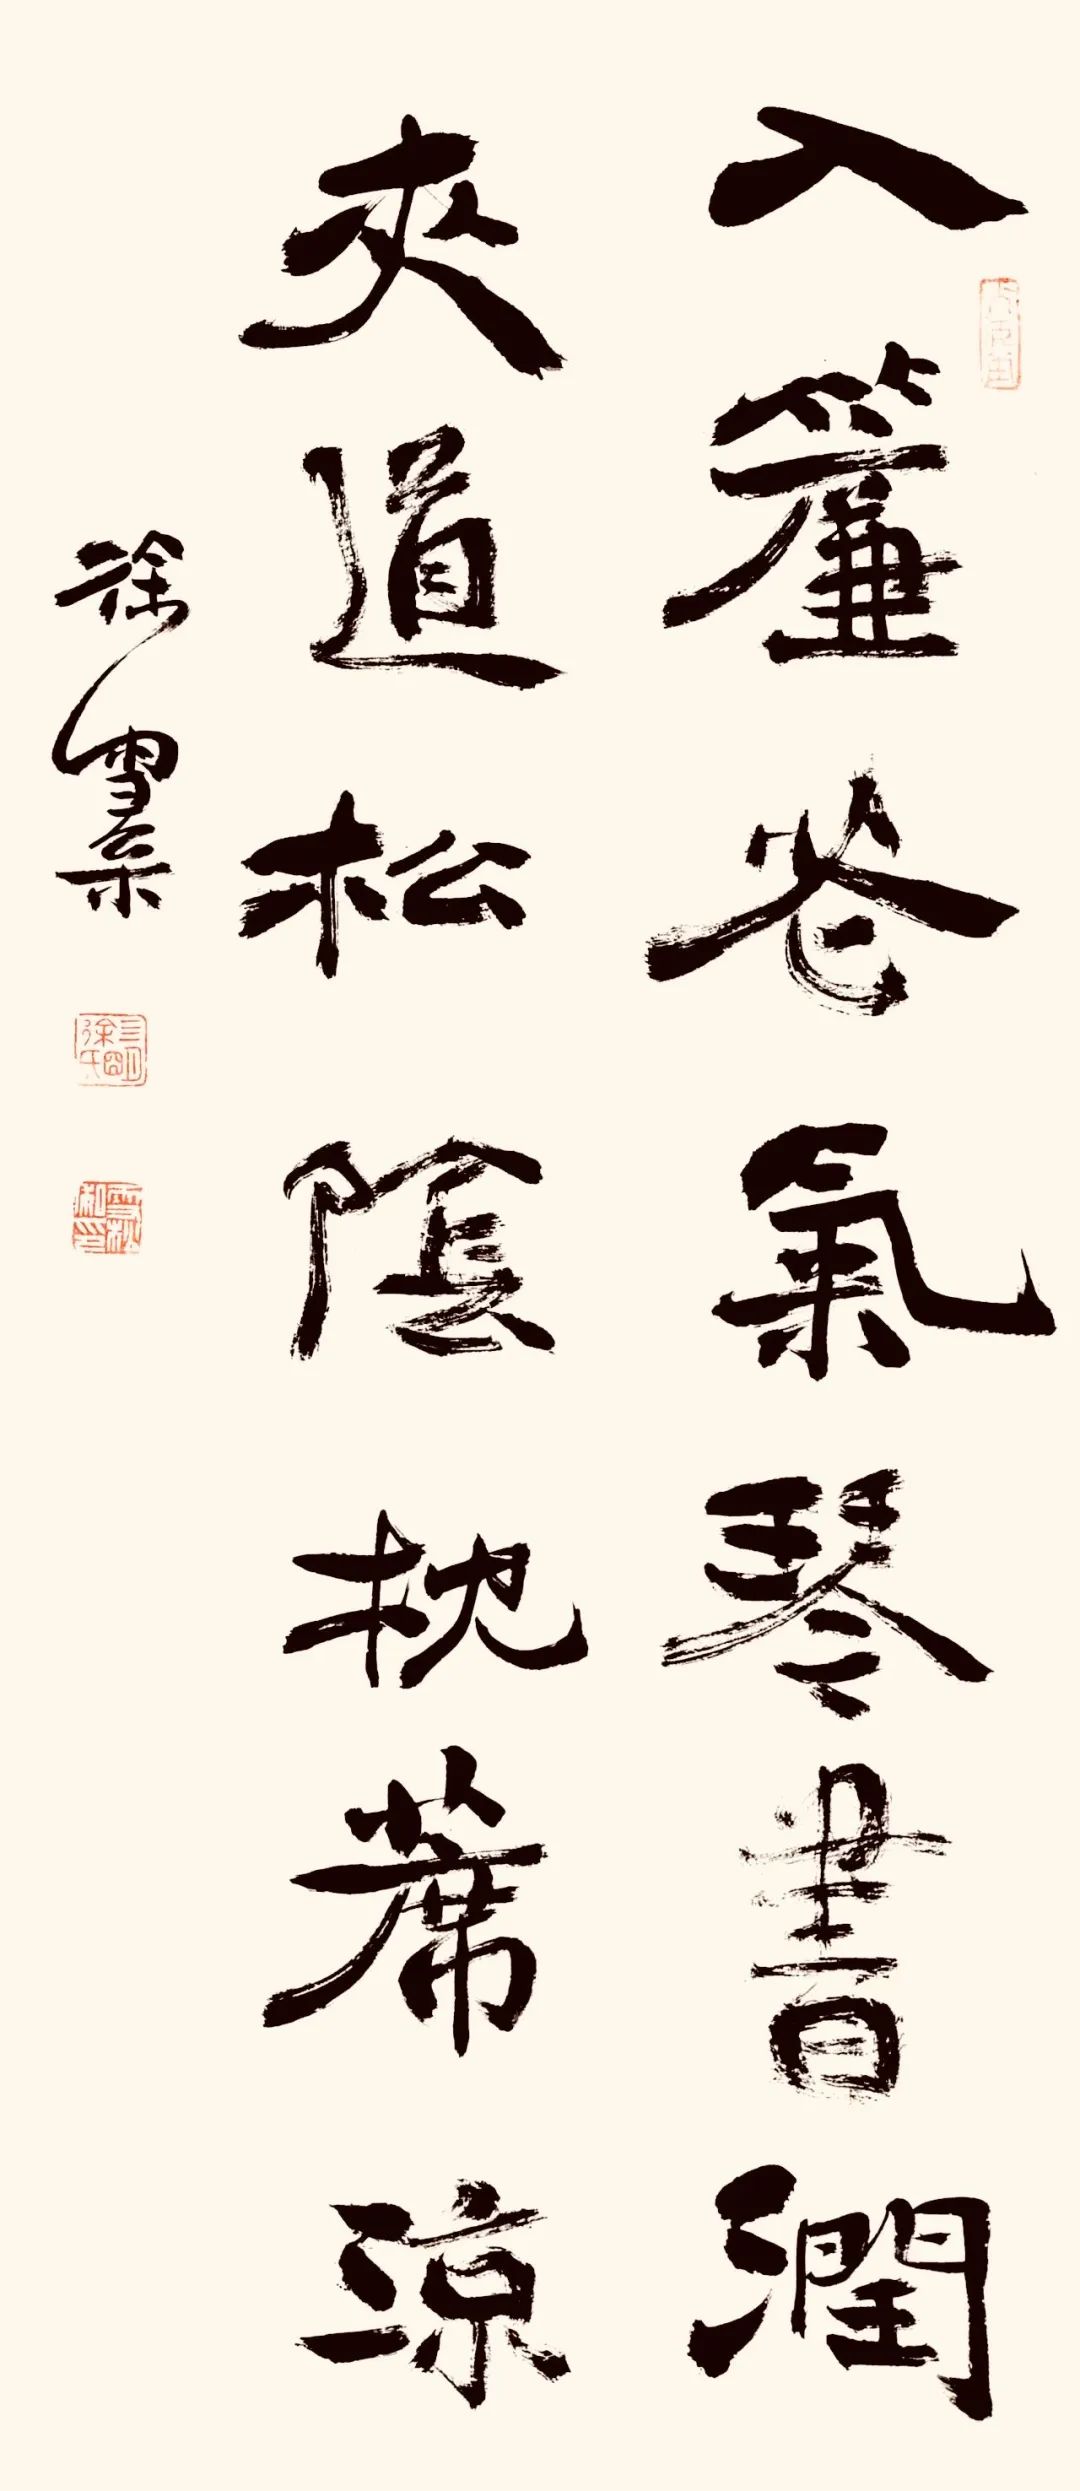 入簾花氣琴書潤
夾道松陰枕蓆涼
徐雪枀